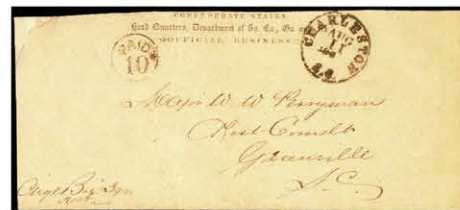 CONFEDERATE STATES.
Head Quarters, Department of So. Ca., Ga. and
OFFICIAL BUSINESS.
PAID
10
CHARLESTON
AUG
11
S.C.
Major W W Perryman
Post Comdt
Greenville
S.C.